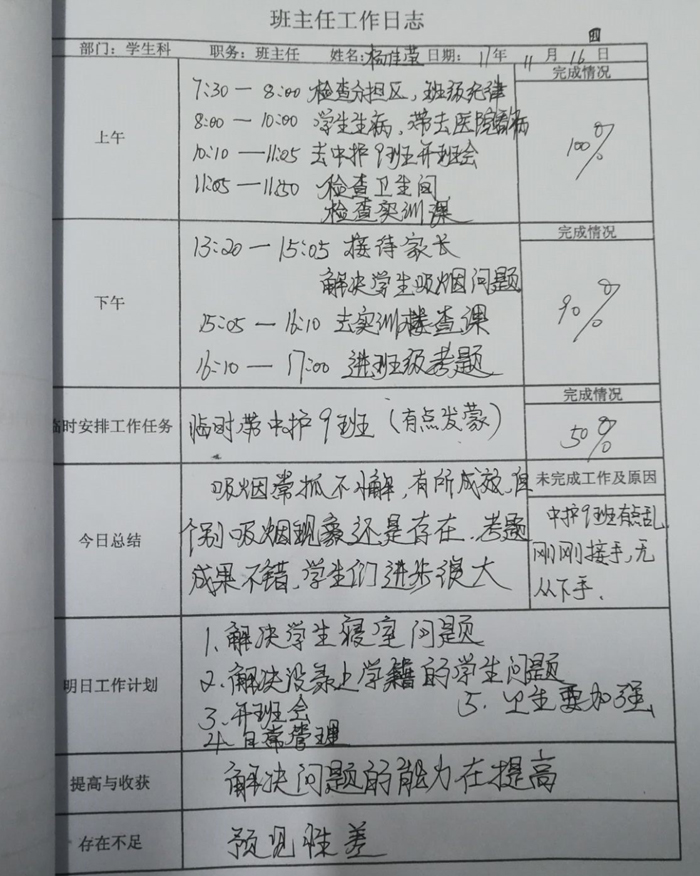 班主任工作日志
四
部门：学生科 职务：班主任 姓名：杨佳莹 日期：17年11月16日
上午
7:30—8:00 检查分担区，班级纪律
8:00—10:00 学生生病，带去医院看病
10:10—11:05 去中护9班开班会
11:05—11:50 检查卫生间
检查实训课
完成情况
100%
下午
13:20—15:05 接待家长
解决学生吸烟问题
15:05—16:10 去实训楼查课
16:10—17:00 进班级考题
完成情况
90%
临时安排工作任务
临时带中护9班（有点发蒙）
完成情况
50%
今日总结
吸烟常抓不懈，有所成效，但
个别吸烟现象还是存在．考题
成果不错，学生们进步很大
未完成工作及原因
中护9班有点乱
刚刚接手，无
从下手．
明日工作计划
1．解决学生寝室问题
2．解决没录上学籍的学生问题
3．开班会 5．卫生要加强
4．日常管理
提高与收获
解决问题的能力在提高
存在不足
预见性差